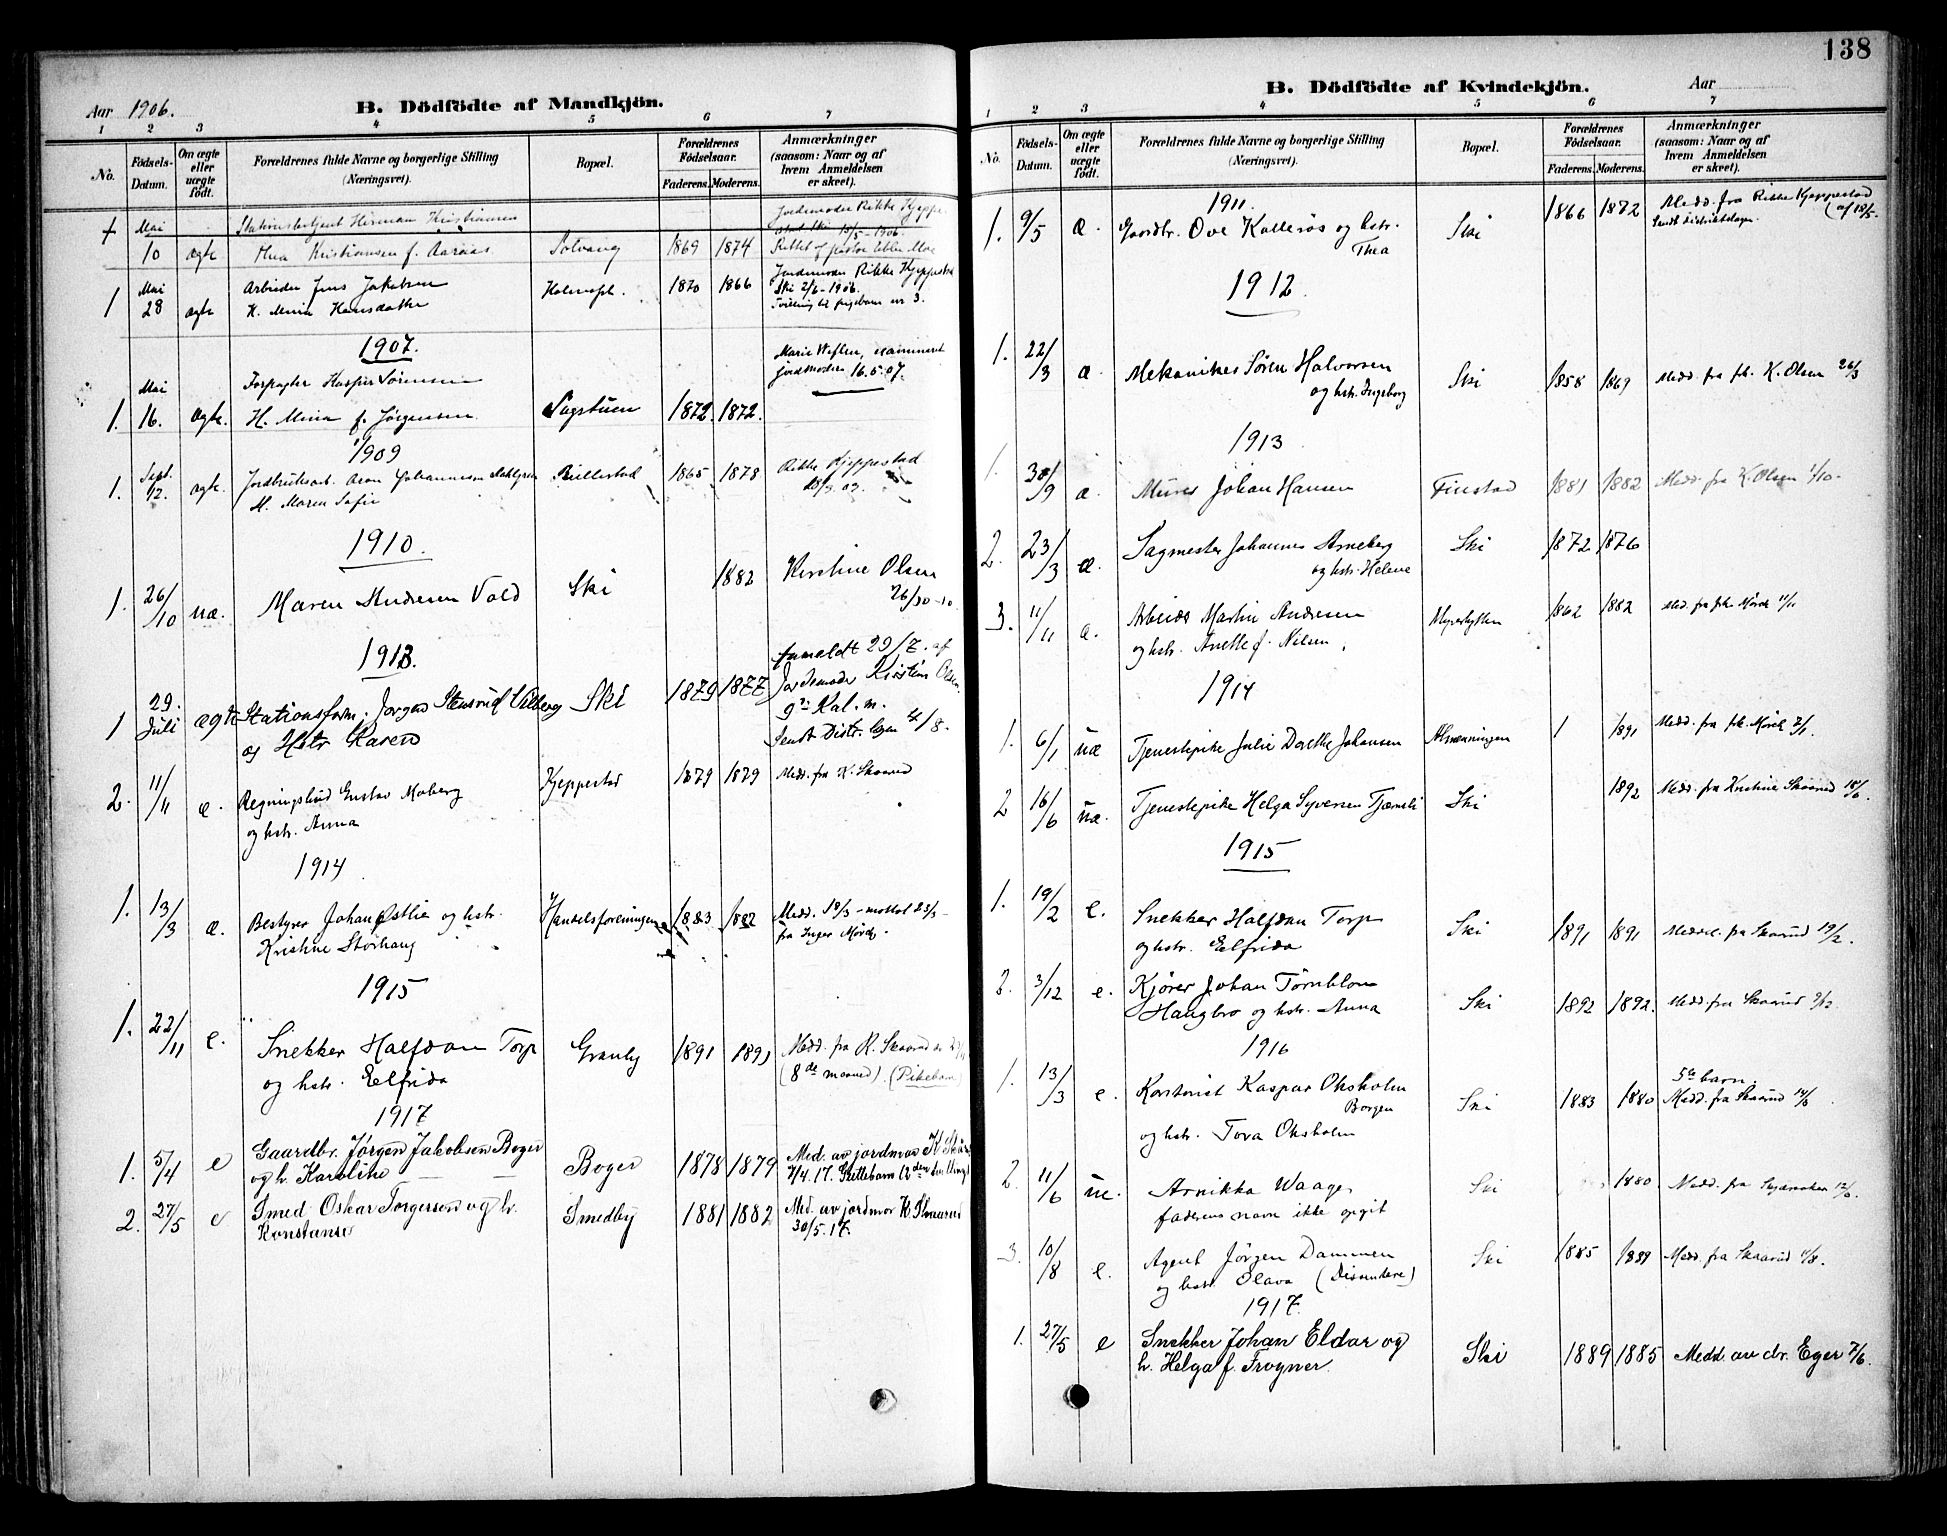 Aar 1906.
B. Dödfödte af Mandkjön.
1 2 3 4 5 6 7
No.
Födsels-Datum.
Om ægte eller uægte födt.
Forældrenes fulde Navne og borgerlige Stilling (Næringsvei).
Bopæl.
Forældrenes Födselsaar.
Faderens. Moderens.
Anmærkninger (saasom: Naar og af hvem Anmeldelsen er skeet).
Mai Stationsbetjent Herman Kristiansen Jordemoder Rikke Kjeppe-
10 ægte Thea Kristiansen f. Aaraas Solvang 1869 1874
Mai Arbeider Jens Jakobsen Jordemoder Rikke Kjeppestad
1 28 ægte H. Mina Hansdatter 1870 1866 Ski 2/6-1906.
Tvilling til pigebarn nr 3.
1907.
Mai Forpagter Kasper Sørensen Marie Weflen, examineret
jordmoder 16.5.07.
1. 16. ægte. H. Mina f. Jørgensen Sagstuen 1872. 1872.
1909
1. Sept. 12. ægte Johannesen 1865 1878 Rikke Kjeppestad
H. Maren Sofie
1910.
1. 26/10 uæ. Maren Andresen Vold Ski 1882 Kirstine Olsen
26/10-10.
1913.
Anmeldt 29/7. af
1 29. Juli ægte Stationsform. Jørgen Stensrud Ski 1879 1877 Jordemoder Kirstine Olsen
og Hstr Karen
Sendt Distr. lægen 4/8.
2. 11/11 æ. Gustav Moberg Kjeppestad 1879 1879 Medd. fra K. Skaarud
og hstr. Anna
1914
1. 13/3 æ. Bestyrer Johan Østlie og hstr. Handelsforeningen 1883 1882 Medd. 18/3 - mottat 23/3 -
Kristine Storhaug fra Inger Mörck.
1915
1. 22/11 e. Snekker Halfdan Torp Granly 1891 1891 Medd. fra K. Skaarud
og hstr. Elfrida (8de maaned). (Pikebarn)
1917
1. 5/4 e Gaardbr. Jørgen Jakobsen Boger Boger 1878 1879 Med. av jordmor K
og h. Karoline 7/4.17.
2. 27/5 e Smed Oskar Torgersen og h. Smedby 1881 1882 Med. av jordmor K Skaarud
Konstanse 30/5.17.
138
B. Dödfödte af Kvindekjön.
Aar
1 2 3 4 5 6 7
No.
Födsels-Datum.
Om ægte eller uægte födt.
Forældrenes fulde Navne og borgerlige Stilling (Næringsvei).
Bopæl.
Forældrenes Födselsaar.
Faderens. Moderens.
Anmærkninger (saasom: Naar og af hvem Anmeldelsen er skeet).
1911.
1. 9/5 æ. Gaardbr. Ove Kollerös og hstr. Ski 1866 1872 Medd. fra Rikke Kjeppestad
Thea Sendt distriktslægen
1912.
1. 22/3 æ Mekaniker Sören Halvorsen Ski 1858 1869 Medd. fra frk. K. Olsen 26/3
og hstr. Ingeborg
1913
1. 30/9 æ. Murer Johan Hansen Finstad 1881 1882 Medd. fra K. Olsen 1/10.
2. 23/3 æ. Sagmester Johannes Arneberg Ski 1872 1876
og hstr. Helene
3. 11/11 æ. Arbeider Martin Andresen 1862 1882 Med. fra frk. Mörck 11/11
og hstr. Anette f. Nilsen
1914
1. 6/1 uæ Tjenestepike Julie Dorthe Johansen Almenningen 1891 Medd. fra frk. Mörck 7/1.
2 16/6 uæ. Tjenestepike Helga Syversen Tjernsli Ski 1892 Medd. fra Kristine Skaarud 18/6.
1915
1. 19/2 e. Snekker Halfdan Torp Ski 1891 1891 Meddel. fra Skaarud 19/2.
og hstr. Elfrida
2. 3/12 e. Kjører Johan Törnblom
Haugbro og hstr. Anna Ski 1892 1892. Medd. fra Skaarud
1916
5te barn.
1. 13/3 e. Kontorist Kaspar Oksholm Ski 1883 1880 Medd. fra Skaarud
Borgen
og hstr. Tora Oksholm
2. 11/6 ue. Annikka Waage, Ski 1880 Medd. fra
faderens navn ikke opgit
3. 10/8 e. Agent Jörgen Dammen Ski 1885 1889 Medd. fra Skaarud 11/8.
og hstr. Olava (Dissentere)
1917.
1. 27/5 e Snekker Johan Eldar og
h. Helga f. Frogner. Ski 1889 1885 Medd. av dr. Eger 7/6.